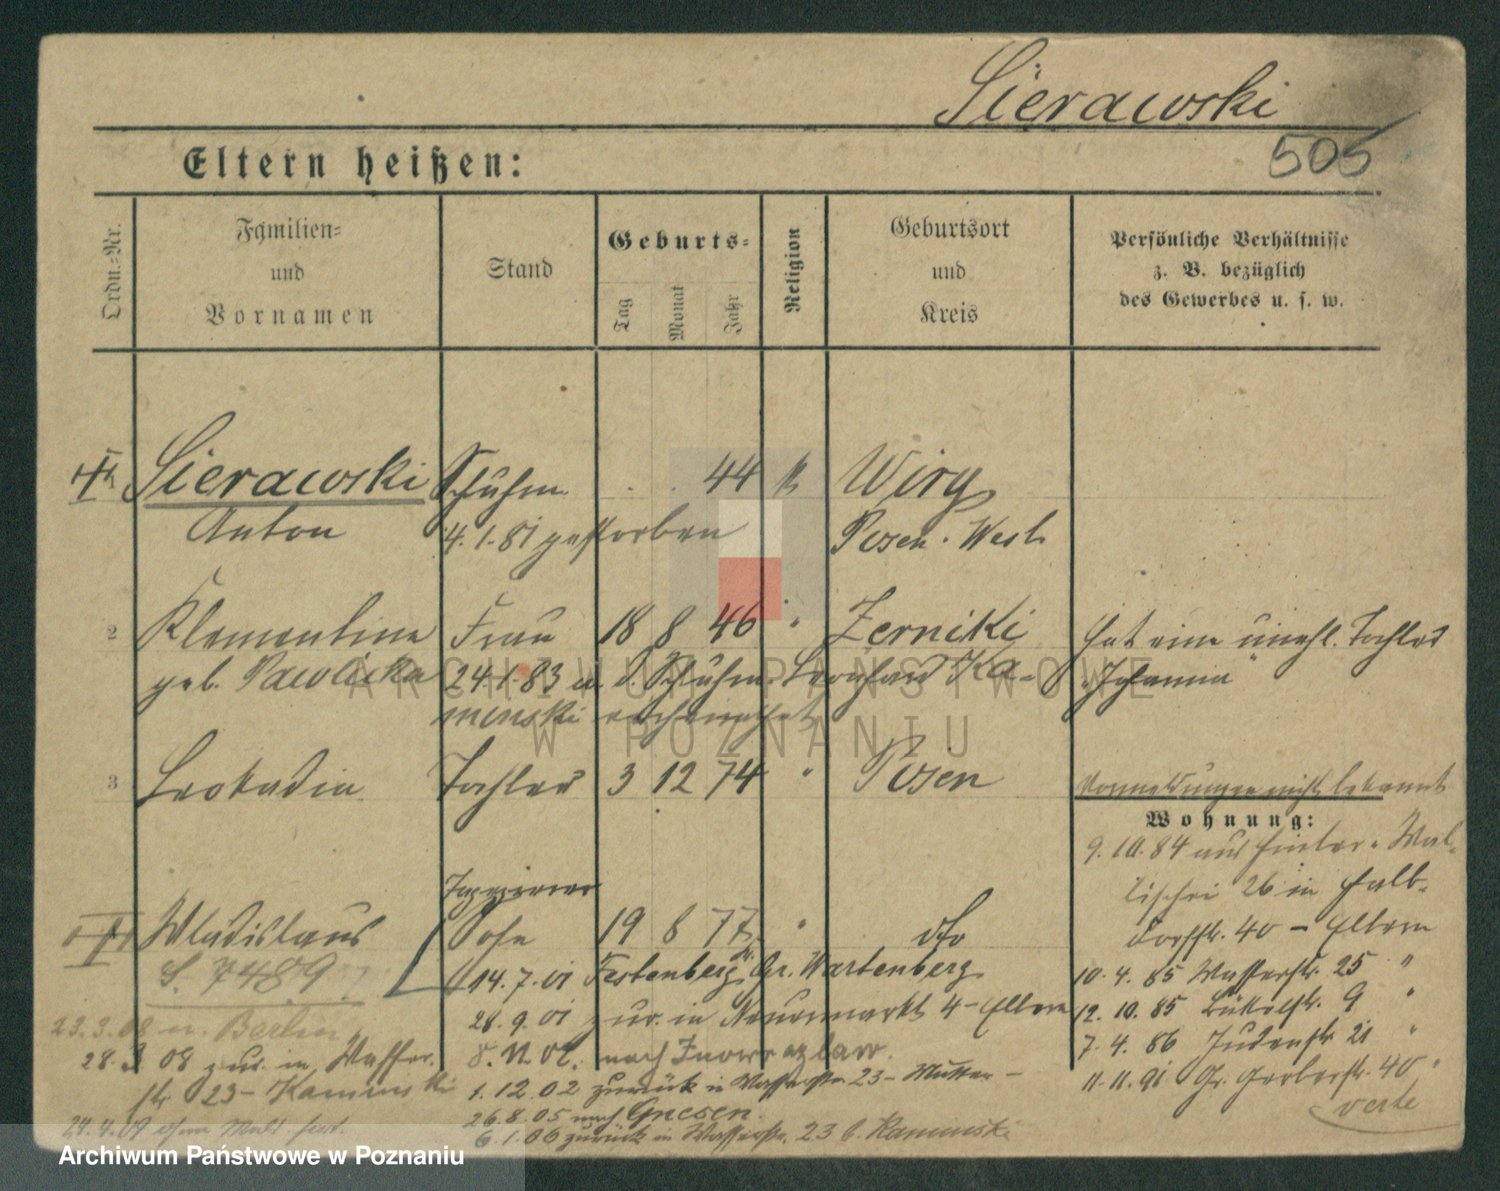 Sierawski
Eltern heißen:
505
Ordn.-Nr.
Familien-
und
Vornamen
Stand
Geburts-
Tag
Monat
Jahr
Religion
Geburtsort
und
Kreis
Persönliche Verhältnisse
z. B. bezüglich
des Gewerbes u. s. w.
Sierawski Schuhm. 44 k Wiry
Anton 4.1.81 gestorben Posen-West
2 Klementine Frau 18 8 46 " Zerniki hat eine unehl. Tochter
geb. Pawlicka 24.1.83 m. d. Schuhm. Leonhard Ka- "Johanna"
minski verheirathet
3 Leokadia Tochter 3 12 74 " Posen
Vormeldungen nicht bekannt
Wohnung:
9.10.84 aus Hinter-Wal-
lischei 26 in Halb-
dorfstr. 40 - Eltern
10.4.85 Wasserstr. 25 "
12.10.85 Büttelstr. 9 "
7.4.86 Judenstr. 21 "
11.11.91 Gr. Gerberstr. 40 "
verte
Tapezierer
Wladislaus Sohn 19 8 77 " dto
S. 7489
14.7.01 Festenberg, Kr. Gr. Wartenberg
28.9.01 zur. in Neuenmarkt 4 - Eltern
nach Inowrazlaw.
1.12.02 zurück in Wasserstr. 23 - Mutter -
26.8.05 nach Gnesen.
6.1.06 zurück in Wasserstr. 23 b. Kaminski
23.3.08 n. Berlin
08 zur. in Wasser-
str. 23 - Kaminski
24.4.09
ARCHIWUM PAŃSTWOWE
W POZNANIU
Archiwum Państwowe w Poznaniu